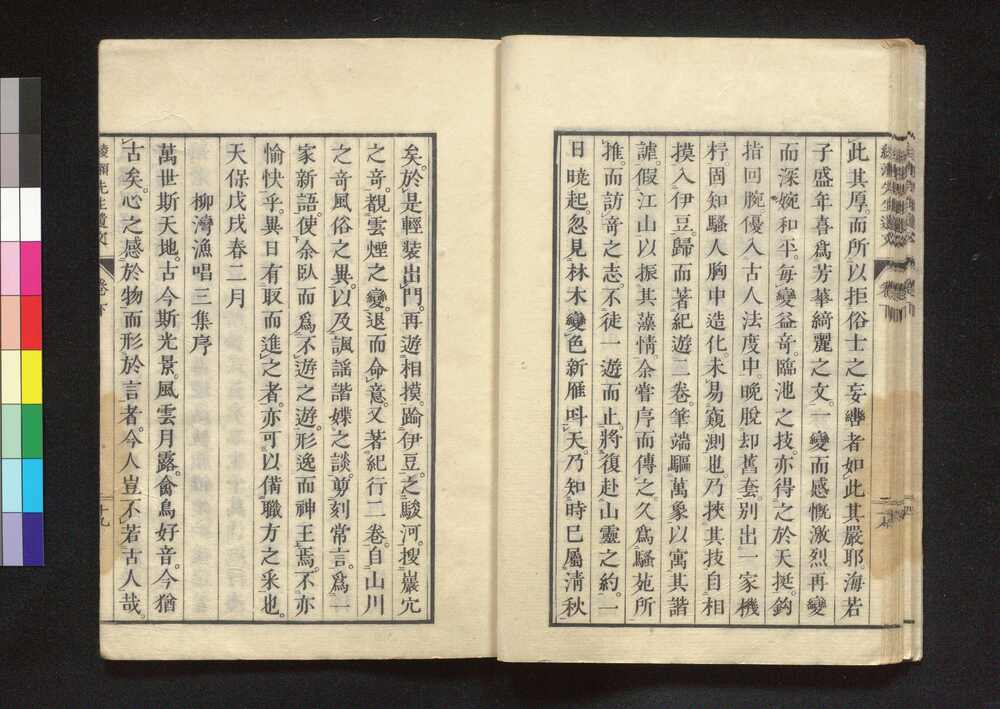 此其厚。而所以拒俗士之妄轡者如此其嚴耶。海若
子盛年喜爲芳華綺麗之文。一變而感慨激烈再變
而深婉和平。每變益奇。臨池之技。亦得之於天挺。鈎
指回腕優入古人法度中。晩脫却舊套。別出一家機
杼。固知騷人胸中造化。未易窺測也乃挾其技自相
摸入伊豆。歸而著紀遊二卷。筆端驅萬象以寓其諧
謔。假江山以振其藻情。余嘗序而傳之。久爲騷苑所
推。而訪奇之志。不徒一遊而止。將復赴山靈之約。一
日曉起。忽見林木變色新雁呌天。乃知時已屬清秋
矣。於是輕裝出門。再遊相摸。踰伊豆。之駿河。搜巖穴
之奇。觀雲煙之變。退而命意。又著紀行二卷。自山川
之奇風俗之異。以及諷謡諧媟之談。剪刻常言。爲一
家新語。使余臥而爲不遊之遊。形逸而神王焉。不亦
愉快乎。異日有取而進之者。亦可以備職方之采也。
天保戊戌春二月
柳灣漁唱三集序
萬世斯天地。古今斯光景。風雲月露。禽鳥好音。今猶
古矣。心之感於物而形於言者。今人豈不若古人哉。
綾瀨先生遺文 卷下 十九